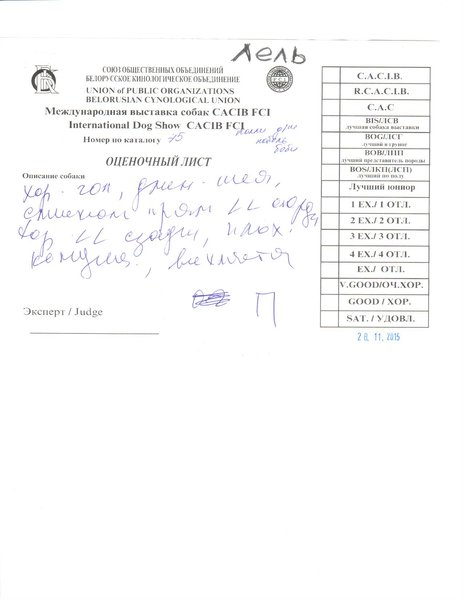 Лель
СОЮЗ ОБЩЕСТВЕННЫХ ОБЪЕДИНЕНИЙ
БЕЛОРУССКОЕ КИНОЛОГИЧЕСКОЕ ОБЪЕДИНЕНИЕ
UNION of PUBLIC ORGANIZATIONS
BELORUSIAN CYNOLOGICAL UNION
FCI
Международная выставка собак CACIB FCI
International Dog Show CACIB FCI
Номер по каталогу 75
ОЦЕНОЧНЫЙ ЛИСТ
Описание собаки
Хор. гол, длин. шея,
слишком прям LL
Хор LL сзади, плох.
Эксперт / Judge
П
C.A.C.I.B.
R.C.A.C.I.B.
C.A.C
BIS/ЛСВ
лучшая собака выставки
BOG/ЛСГ
лучший в группе
BOB/ЛПП
лучший представитель породы
BOS/ЛКП(ЛСП)
лучший по полу
Лучший юниор
1 EX./ 1 ОТЛ.
2 EX./ 2 ОТЛ.
3 EX./ 3 ОТЛ.
4 EX./ 4 ОТЛ.
EX./ ОТЛ.
V.GOOD/ОЧ.ХОР.
GOOD / ХОР.
SAT. / УДОВЛ.
28. 11. 2015